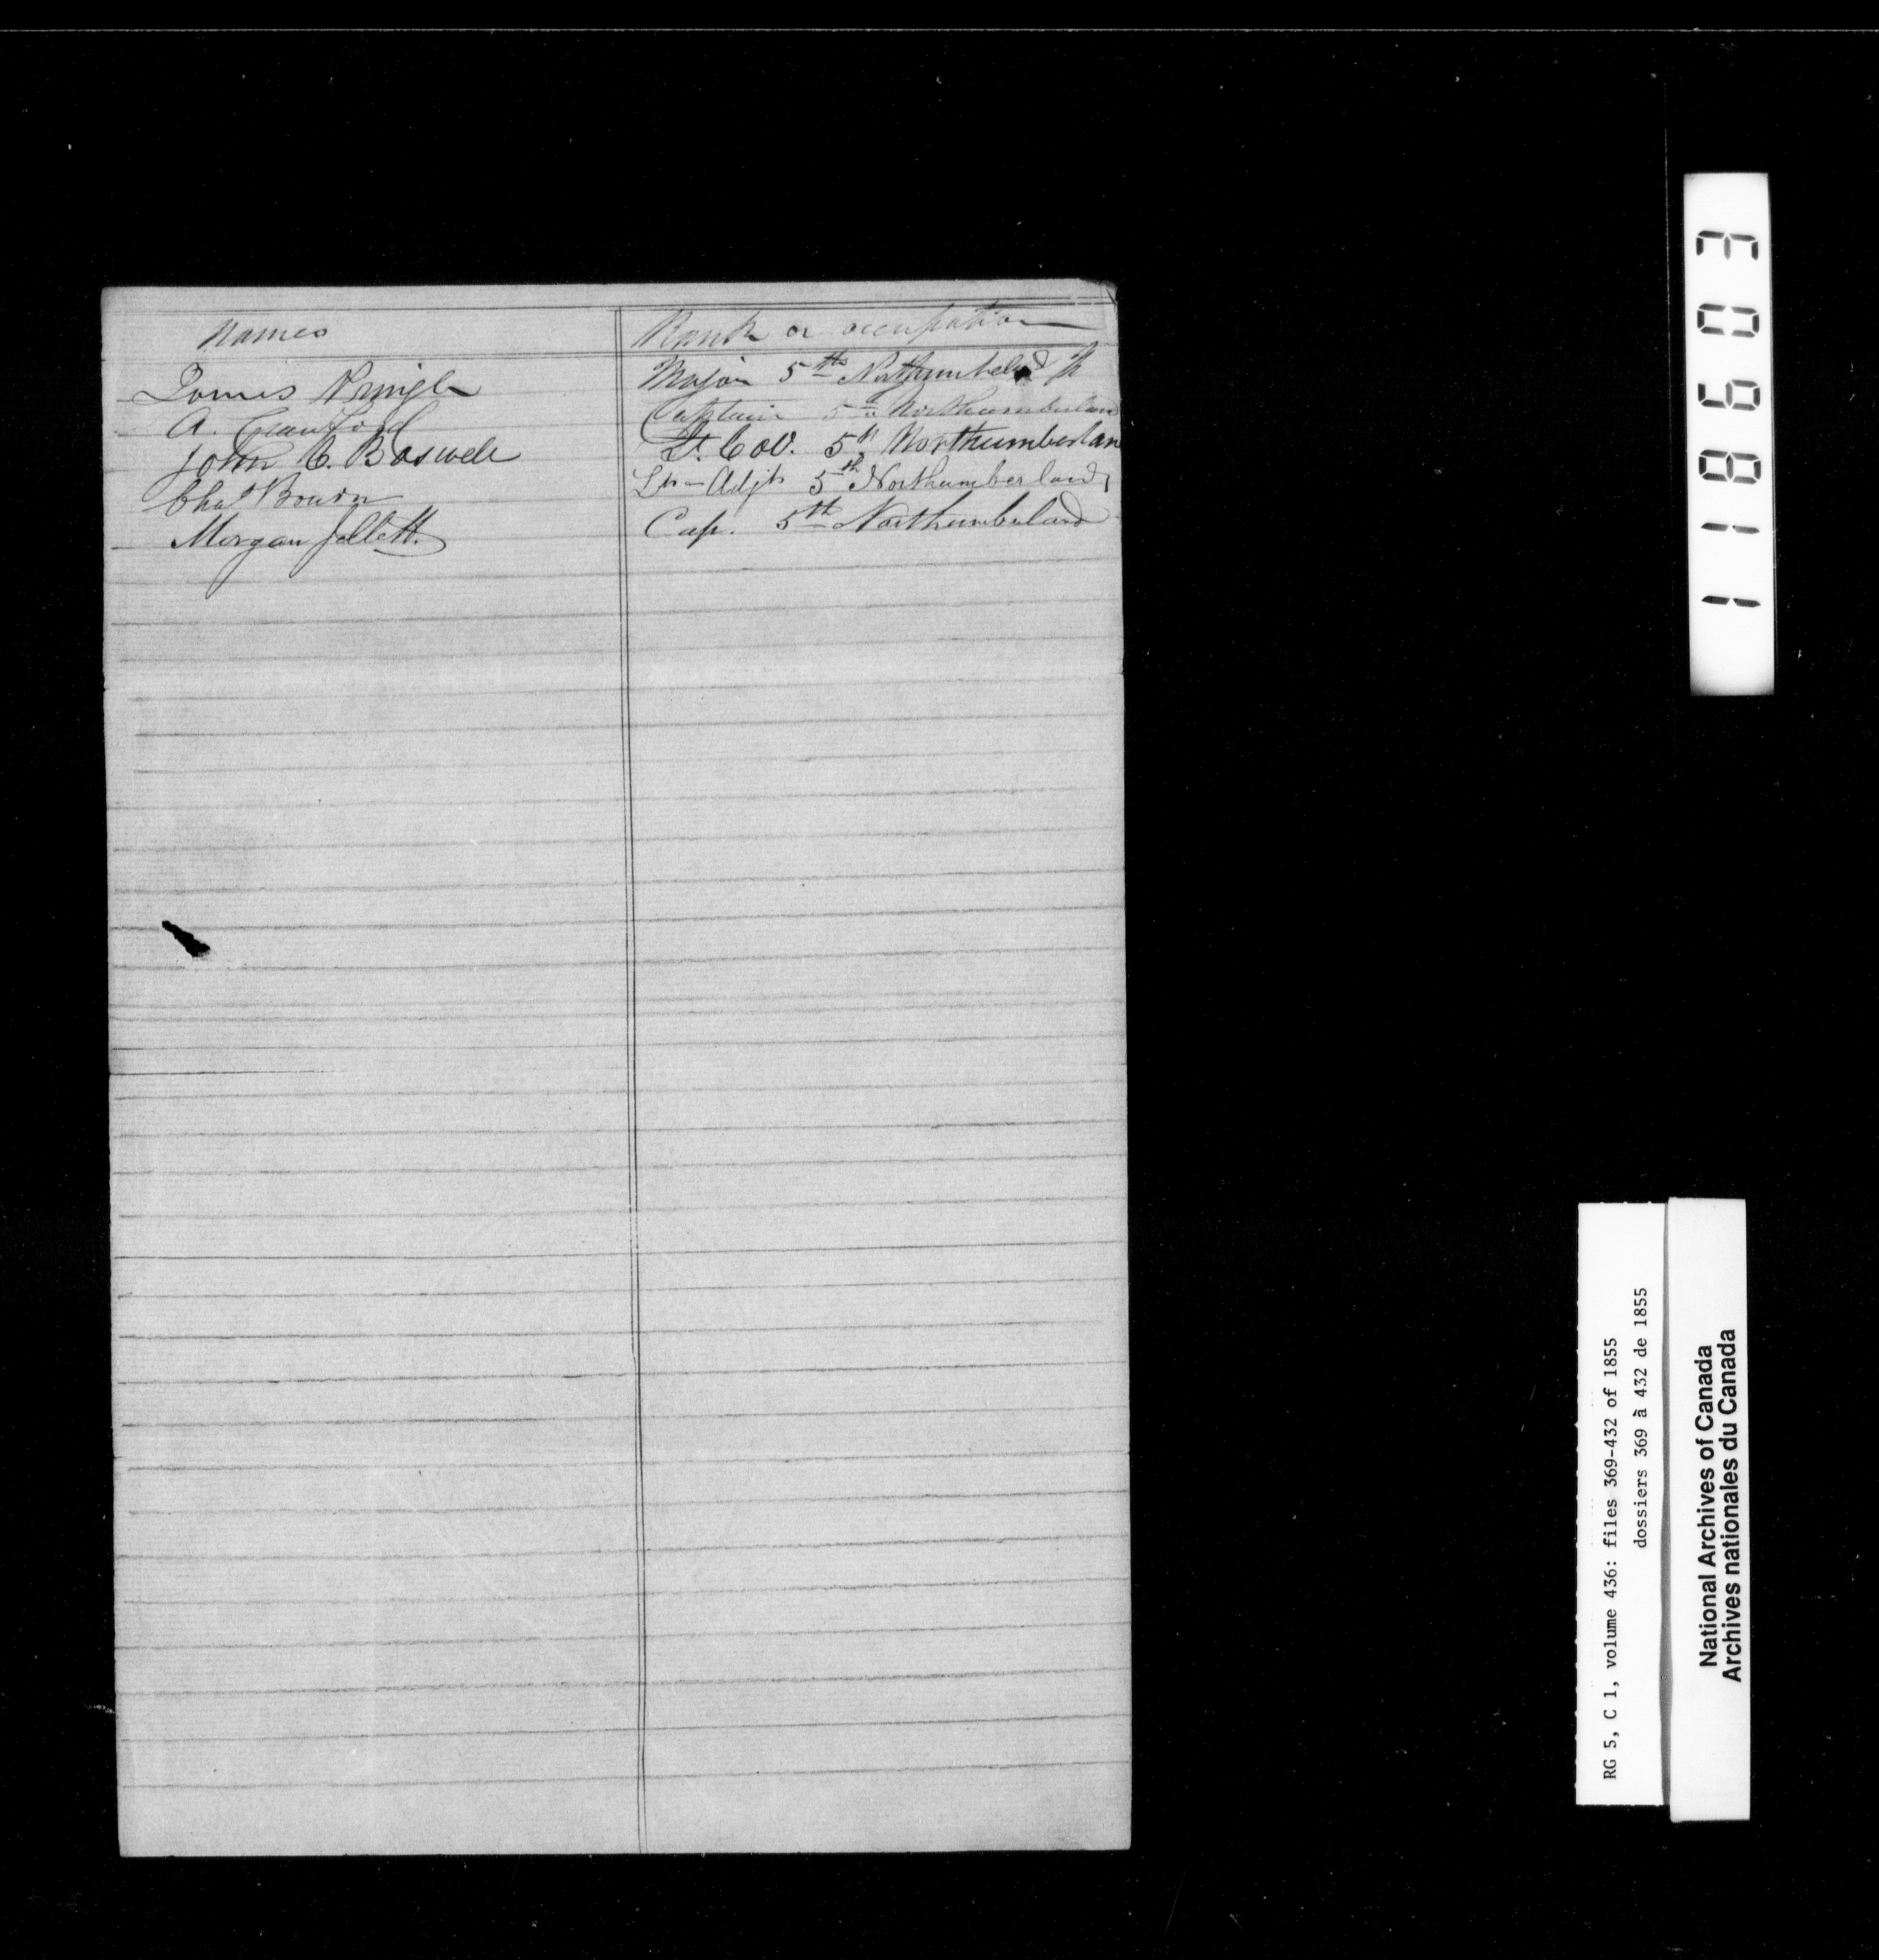 Names Rank or occupation
James Pringle Major 5th Northumberland
A. Crawford Captain 5th Northumberland
John C. Boswell Lt. Col. 5th Northumberlan
Chas Bourn Lt - Adjt 5th Northumberland
Morgan Jellett. Cap. 5th Northumberland
118603
RG 5, C 1, volume 436: files 369-432 of 1855
dossiers 369 à 432 de 1855
National Archives of Canada
Archives nationales du Canada